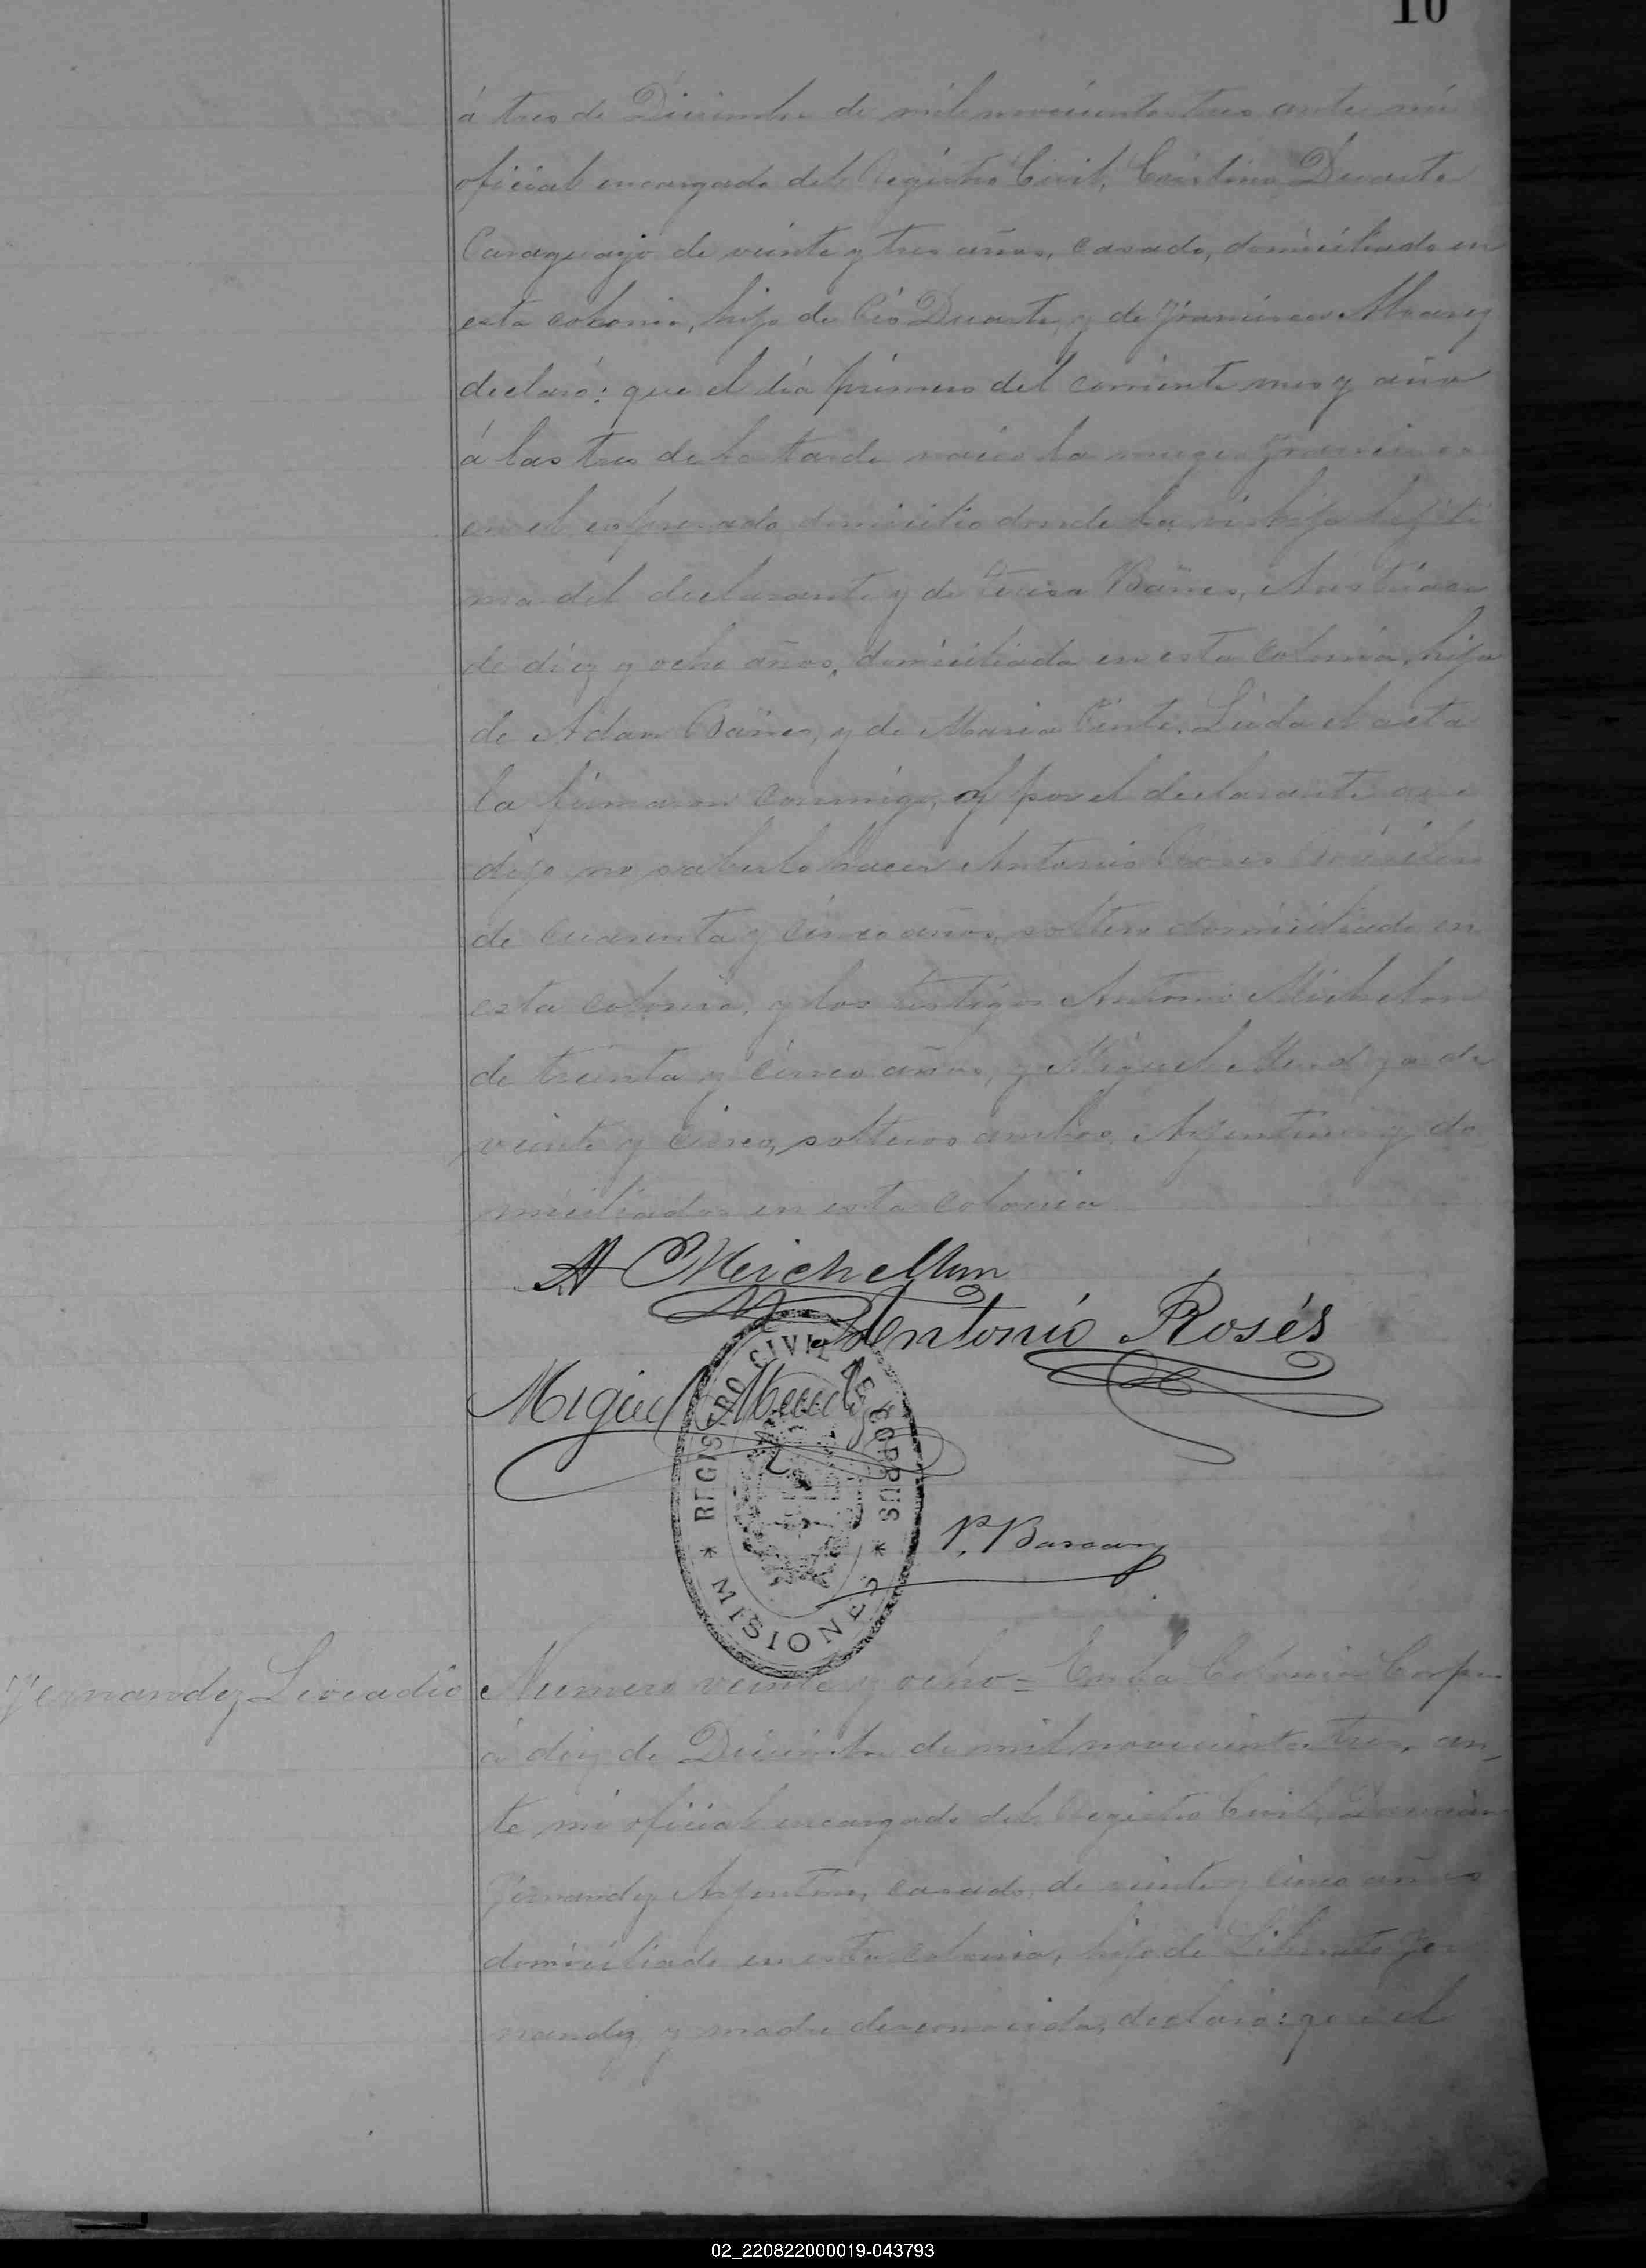 10
á tres de Diciembre de mil novecientos tres ante mí
oficial encargado del Registro Civil, Cristino Duarte
Paraguayo de veinte y tres años, casado, domiciliado en
esta colonia, hijo de Pio Duarte, y de Francisca Alvarez
declaró: que el día primero del corriente mes y año
á las tres de la tarde nació la muger Francisca
en el espresado domicilio donde la vi hija lejiti
ma del declarante y de Teresa Bänes, Austriaca
de diez y ocho años, domiciliada en esta colonia, hija
de Adan Bänes, y de Maria Leida el acta
la firmaron conmigo, y por el declarante que
dijo no saberlo hacer Antonio
de cuarenta y cinco años, soltero domiciliado en
esta colonia, y los testigos Antonio Michelon
de treinta y cinco años, y Miguel de
veinte y cinco, solteros ambos, Argentinos y do
miciliados en esta colonia
A Meichellon
Antonio Rosés
Miguel
REGISTRO CIVIL DE CORPUS
* MISIONES *
P.
Fernandez Leocadio Numero veinte y ocho = En la Colonia Corpus
á diez de Diciembre de mil novecientos tres, an_
te mi oficial encargado del Registro Civil, Damian
Fernandez Argentino, casado, de veinte y cinco años
domiciliado en esta colonia, hijo de Liberato Fer
nandez, y madre desconocida, declaró: que el
02_220822000019-043793